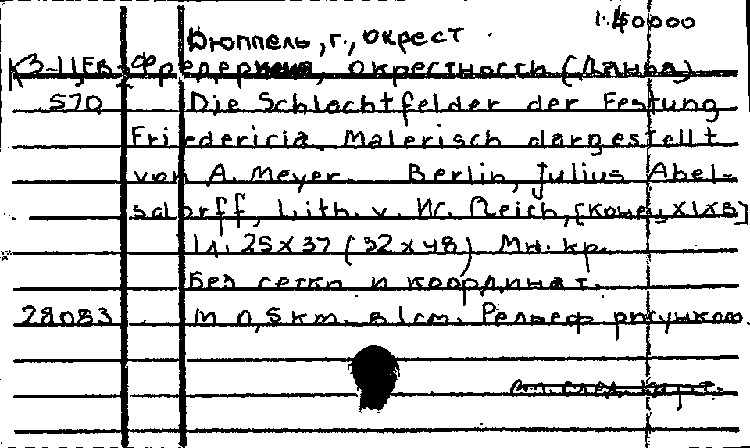 1:40000
Дюппель, г., окрест.
К3-ЦЕв Фредерисия, окрестности (Дания)
570 Die Schlachtfelder der Festung
Friedericia. Malerisch dargestellt
von A. Meyer. Berlin, Julius Abel-
sdorff, Lith. v. W. Reich, [конец XIX в]
1 л. 25 x 37 (32 x 48) Мн. кр.
Без сетки и координат.
28083 М 0,5 km. в 1 cm. Рельеф рисунком.
см. след. карт.